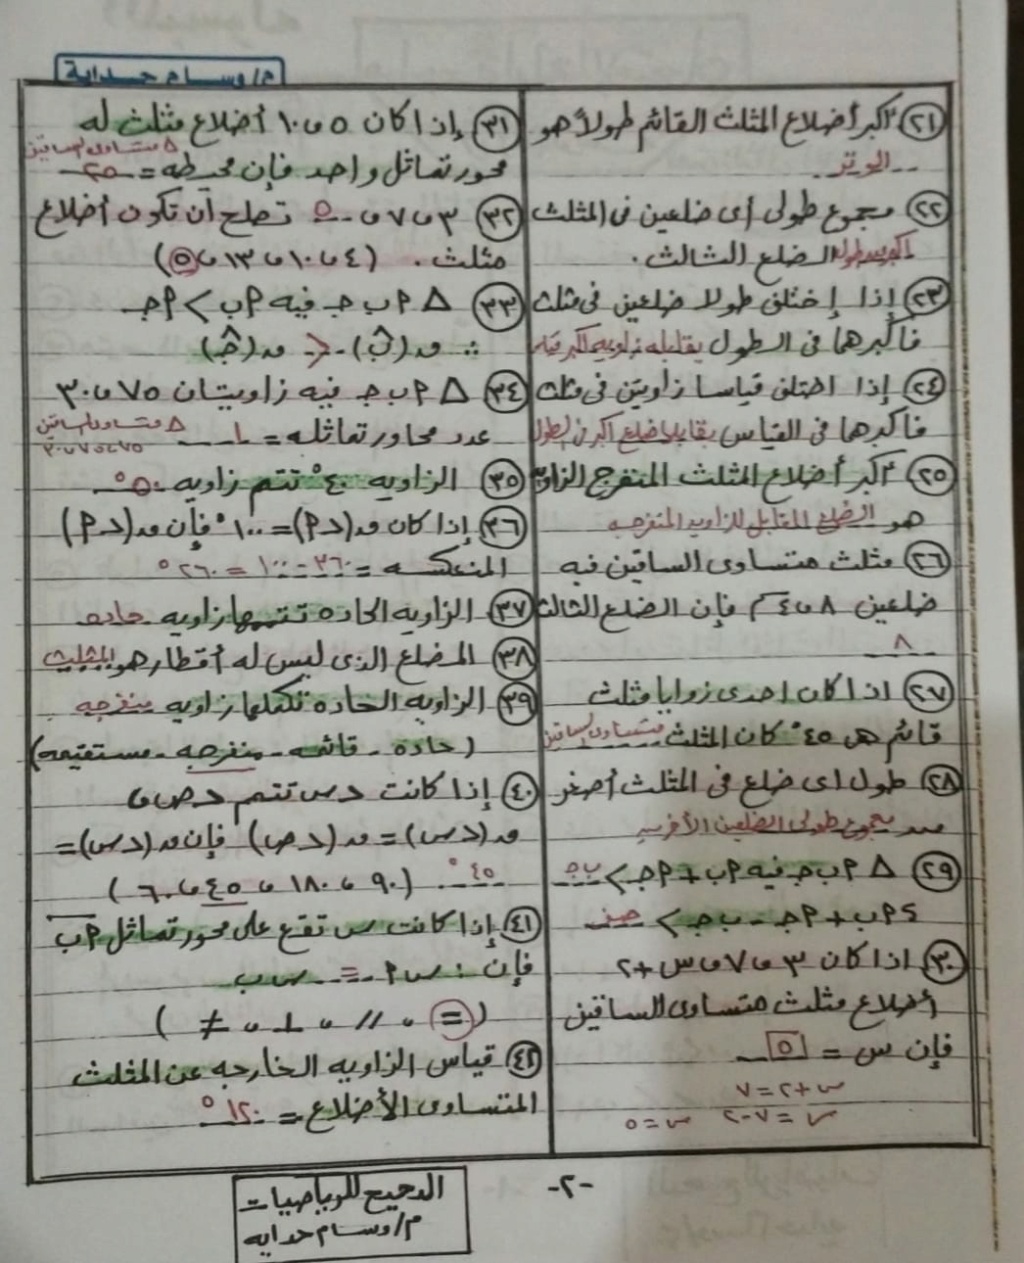 م/وسام حداية
(٢١) أكبر أضلاع المثلث القائم طولاً هو
الوتر.
(٢٢) مجموع طولى أى ضلعين فى المثلث
أكبر من طول الضلع الثالث.
(٢٣) إذا إختلف طولا ضلعين فى مثلث
فأكبرهما فى الطول يقابله زاوية أكبر فى
(٢٤) إذا اختلف قياسا زاويتين فى مثلث
فأكبرهما فى القياس يقابله ضلع أكبر فى الطول
(٢٥) أكبر أضلاع المثلث المنفرج الزاوية
هو الضلع المقابل للزاوية المنفرجة
(٢٦) مثلث متساوى الساقين فيه
ضلعين ٨، ٤ فإن الضلع الثالث
٨
(٢٧) اذا كان احدى زوايا مثلث
قائم هى ٤٥° كان المثلث متساوى الساقين
(٢٨) طول اى ضلع فى المثلث أصغر
من مجموع طولى الضلعين الأخرين
(٢٩) △ ٢ ب جـ فيه ٢ب + ٢جـ > ب جـ
، ٢ب + ٢جـ - ب جـ > صفر
(٣٠) اذا كان ٣، ٧، س + ٢
أضلاع مثلث متساوى الساقين
فإن س = ٥
س + ٢ = ٧
س = ٧ - ٢ س = ٥
(٣١) إذا كان ٥، ١٠ أضلاع مثلث له
△ متساوى الساقين
محور تماثل واحد فإن محيطه = ٢٥
(٣٢) ٣، ٧، ٥ تصلح أن تكون أضلاع
مثلث. (٤، ١٠، ١٣، ٥)
(٣٣) △ ٢ ب جـ فيه ٢ب > ٢جـ
∴ ق(ب̂) < ق(جـ̂)
(٣٤) △ ٢ ب جـ فيه زاويتان ٧٥، ٣٠
عدد محاور تماثله = ١ △ متساوى الساقين
٧٥، ٧٥، ٣٠
(٣٥) الزاويه ٤٠° تتم زاويه ٥٠°
(٣٦) إذا كان ق(د٢) = ١٠٠° فإن ق(د٢)
المنعكسه = ٣٦٠ - ١٠٠ = ٢٦٠°
(٣٧) الزاويه الحاده تتممها زاويه حاده
(٣٨) المضلع الذى ليس له أقطار هو المثلث
(٣٩) الزاويه الحاده تكملها زاويه منفرجه
(حاده - قائمه - منفرجه - مستقيمه)
(٤٠) إذا كانت د س تتم د ص،
ق(د س) = ق(د ص) فإن ق(د س) =
٤٥° (٩٠، ١٨٠، ٤٥، ٦٠)
(٤١) إذا كانت س تقع على محور تماثل ٢ب
فإن: س٢ = س ب
(=، //، ⊥، ≠)
(٤٢) قياس الزاويه الخارجه عن المثلث
المتساوى الأضلاع = ١٢٠°
-٢-
الدحيح للرياضيات
م/وسام حدايه